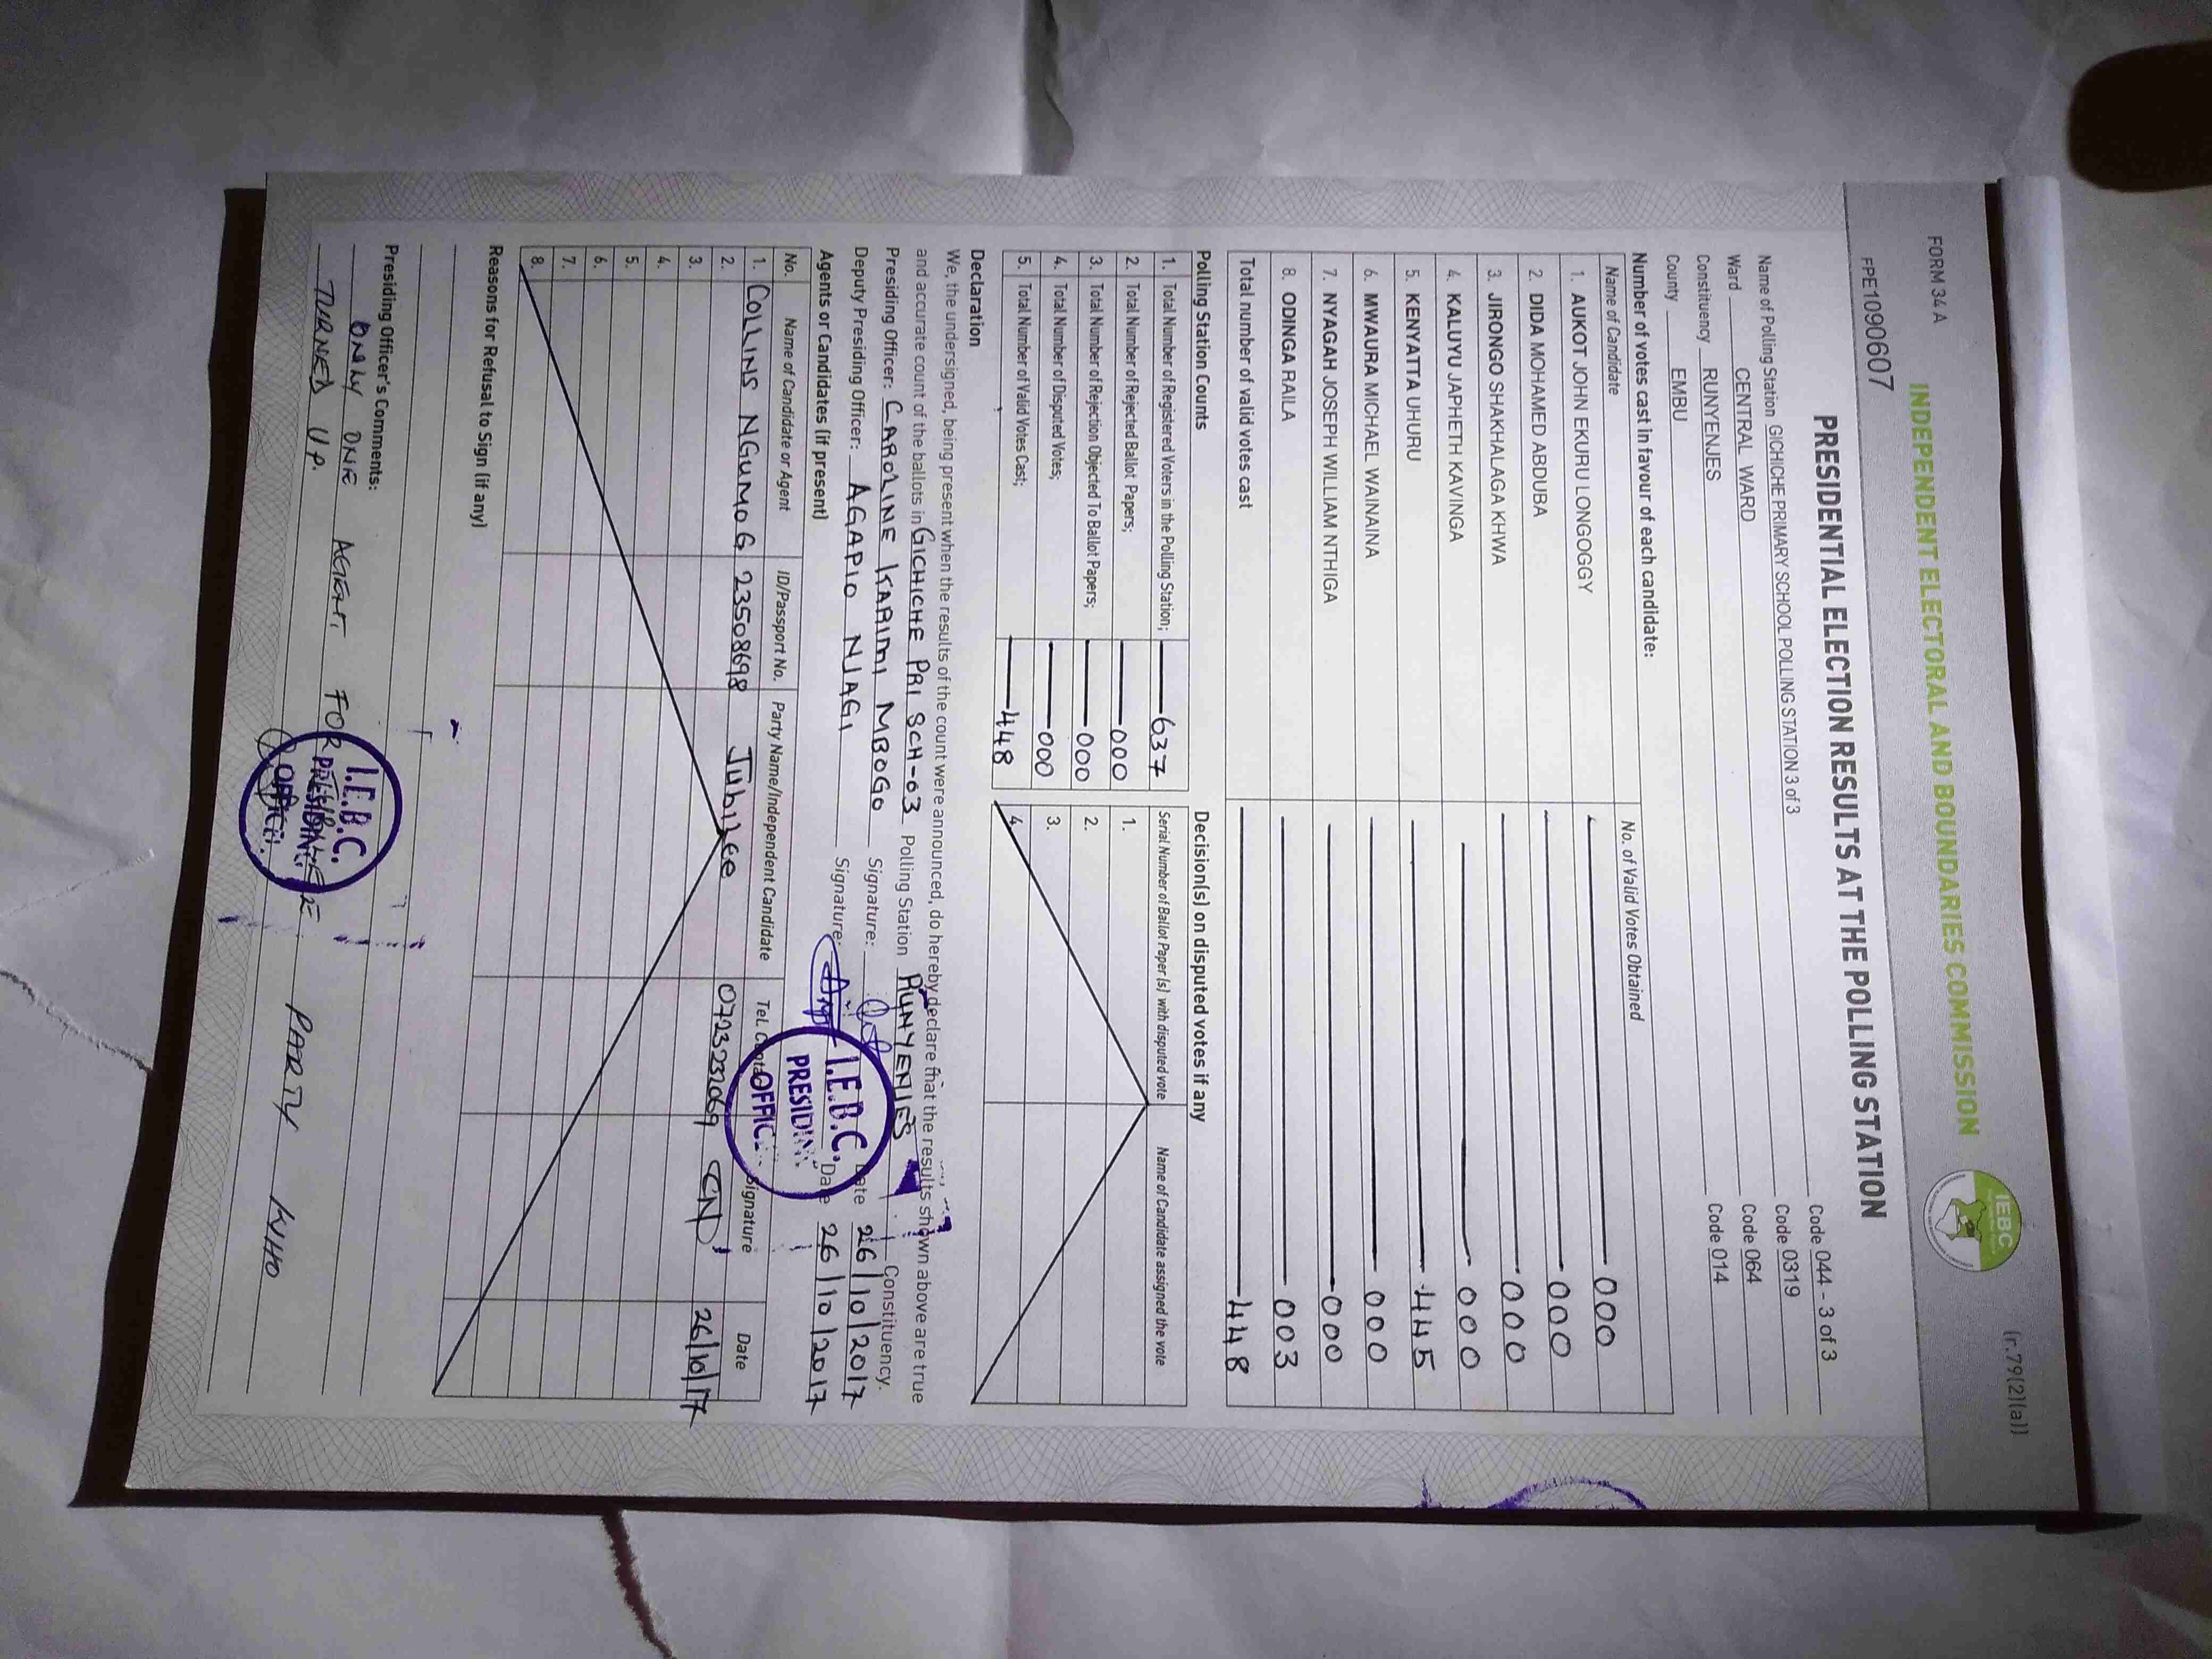 FORM 34 A
(r.79(2)(a))
INDEPENDENT ELECTORAL AND BOUNDARIES COMMISSION
IEBC
FPE1090607
PRESIDENTIAL ELECTION RESULTS AT THE POLLING STATION
Name of Polling Station GICHICHE PRIMARY SCHOOL POLLING STATION 3 of 3 Code 044 - 3 of 3
Ward CENTRAL WARD Code 0319
Constituency RUNYENJES Code 064
County EMBU Code 014
Number of votes cast in favour of each candidate:
Name of Candidate No. of Valid Votes Obtained
1. AUKOT JOHN EKURU LONGOGGY 000
2. DIDA MOHAMED ABDUBA 000
3. JIRONGO SHAKHALAGA KHWA 000
4. KALUYU JAPHETH KAVINGA 000
5. KENYATTA UHURU 445
6. MWAURA MICHAEL WAINAINA 000
7. NYAGAH JOSEPH WILLIAM NTHIGA 000
8. ODINGA RAILA 003
Total number of valid votes cast 448
Polling Station Counts
1. Total Number of Registered Voters in the Polling Station; 637
2. Total Number of Rejected Ballot Papers; 000
3. Total Number of Rejection Objected To Ballot Papers; 000
4. Total Number of Disputed Votes; 000
5. Total Number of Valid Votes Cast; 448
Decision(s) on disputed votes if any
Serial Number of Ballot Paper(s) with disputed vote Name of Candidate assigned the vote
1.
2.
3.
4.
Declaration
We, the undersigned, being present when the results of the count were announced, do hereby declare that the results shown above are true
and accurate count of the ballots in GICHICHE PRI SCH-03 Polling Station RUNYENJES Constituency.
Presiding Officer: CAROLINE KARIMI MBOGO Signature: Date 26/10/2017
Deputy Presiding Officer: AGAPIO NJAGI Signature: Date 26/10/2017
I.E.B.C.
PRESIDING
Agents or Candidates (if present)
No. Name of Candidate or Agent ID/Passport No. Party Name/Independent Candidate Tel. Signature Date
1. COLLINS NGUMO G 23508698 Jubilee 0723232069 CN 26/10/17
2.
3.
4.
5.
6.
7.
8.
Reasons for Refusal to Sign (if any)
Presiding Officer's Comments:
ONLY ONE AGENT FOR PARTY WHO
TURNED UP.
I.E.B.C.
PRESIDING